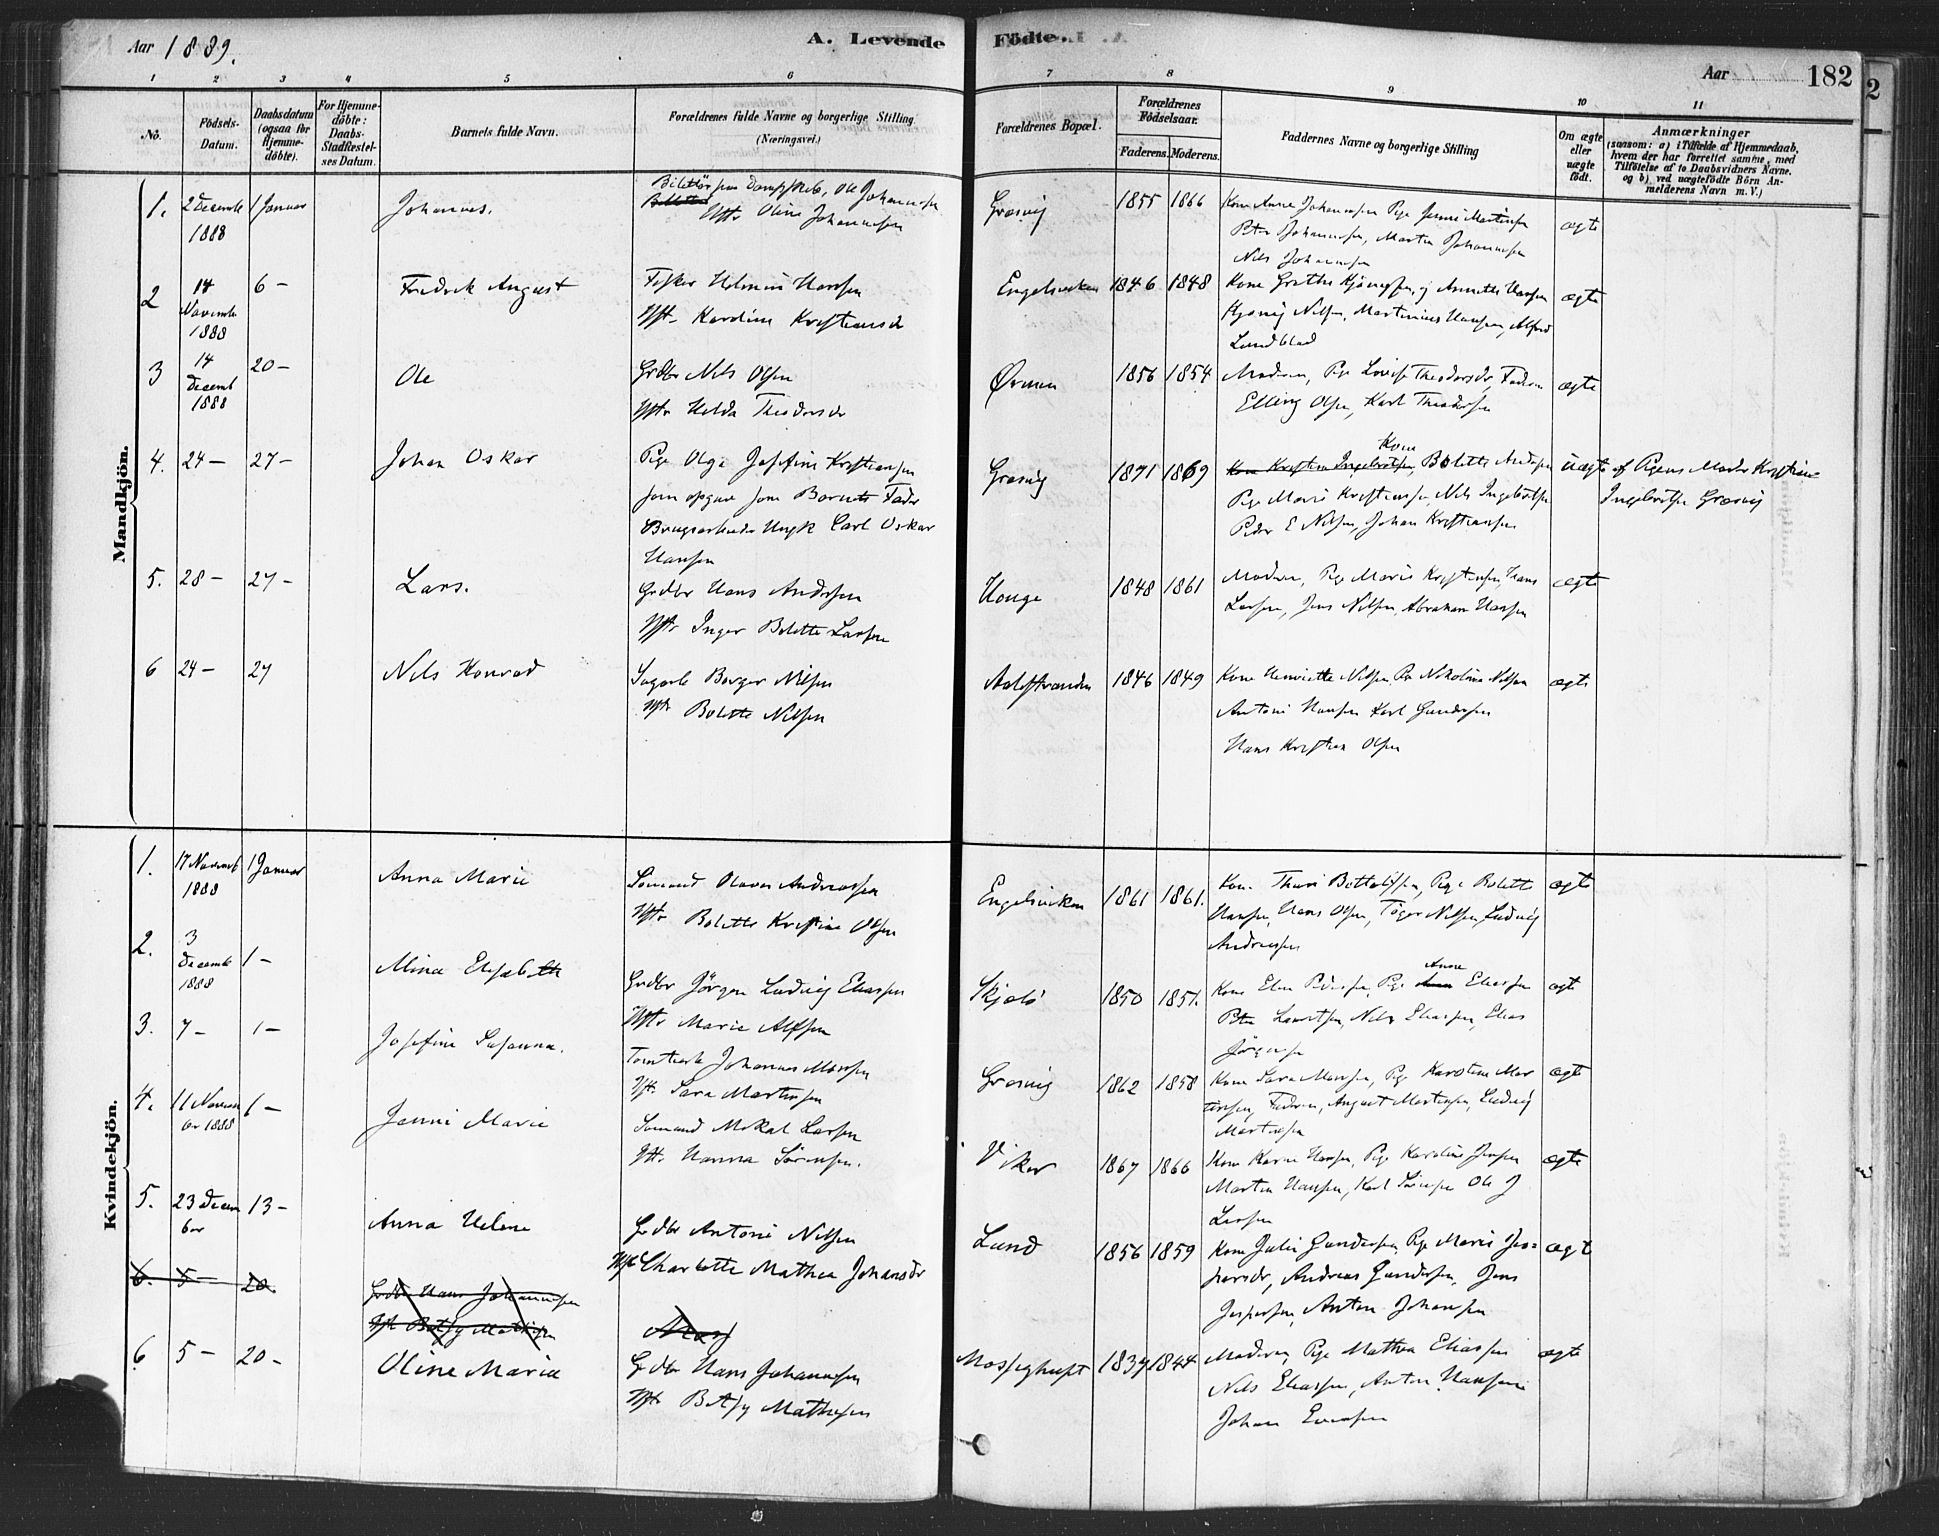 Aar 1889.
A. Levende Födte.
Aar
182
1 2 3 4 5 6 7 8 9 10 11
No.
Födsels-Datum.
Daabsdatum (ogsaa for Hjemme-döbte).
For Hjemme-döbte: Daabs-Stadfæstel-ses Datum.
Barnets fulde Navn.
Forældrenes fulde Navne og borgerlige Stilling (Næringsvei.)
Forældrenes Bopæl.
Forældrenes Födselsaar.
Faderens. Moderens.
Faddernes Navne og borgerlige Stilling
Om ægte eller uægte födt.
Anmærkninger
(saasom: a) i Tilfælde af Hjemmedaab, hvem der har forrettet samme, med Tilföielse af to Daabsvidners Navne, og b) ved uægtefödte Börn Anmelderens Navn m. V.)
Mandkjön.
1. 2 Decemb 1888 1 Januar Johannes. Ole Johannesen
Hst. Oline Johannesen
Græsvig 1855 1866 Kone Anne Johannesen Pige Jenni Martinsen
Peter Johannesen, Martin Johannesen
Nils Johannesen
ægte
2 14 Novemb 1888 6 - Fredrik August Fisker Helmin Hansen
Hst. Karoline Kristiansdr
Engelsviken 1846 1848 Kone Grethe, Annette Hansen
Nilsen, Martinius Hansen, Alfred
Lundblad
ægte
3 14 Decemb 1888 20 - Ole Grdbr Nils Olsen
Hstr Helda Theodorsdr
Ørmen 1856 1854 Moderen, Pige Lovise Theodorsdr, Faderen
Elling Olsen, Karl Theodorsen
ægte
4. 24 - 27 - Johan Oskar Pige Olga Josefine Kristiansen
som opgav som Barnets Fader
Brugsarbeider Ungk Carl Oskar
Hansen
Græsvig 1871 1869 Kone Kristian Ingebretsen, Kone Bolette Andersen
Pige Marie Kristiansen, Nils Ingebretsen
Peder E Nilsen, Johan Kristiansen
uægte af Pigens Moder Kristiane
Ingebretsen Græsvig
5. 28 - 27 - Lars. Grdbr Hans Andersen
Hstr Inger Bolette Larsen
Houge 1848 1861 Moderen, Pige Marie Kristensen, Hans
Larsen, Jens Nilsen, Abraham Hansen
ægte
6 24 - 27 Nils Konrad Sagarb Borger Nilsen
Hstr Bolette Nilsen
Aalestranden 1846 1849 Kone Henriette Nilsen, Pige Nikoline Nilsen
Antoni Hansen Karl Gundersen
Hans Kristian Olsen
ægte
Kvindekjön.
1. 17 Novemb 1888 1 Januar Anna Marie Sømand Olaves Andreassen
Hstr Bolette Kristine Olsen
Engelsviken 1861 1861. Kone Bottolfsen, Pige Bolette
Hansen, Hans Olsen, Tøger Nilsen, Ludvig
Andreassen
ægte
2. 3 Decemb 1888 1 - Mina Elisabeth Grdbr Jörgen Ludvig Eliassen
Hstr Marie Alfsen
Skjelø 1850 1851. Kone Elen Pedersen, Pige Anne Eliassen
Peter Lauritsen, Nils Eliassen, Elias
Jörgensen
ægte
3. 7 - 1 - Josefine Susanna. Johannes Monsen
Hst. Sara Martinsen
Græsvig 1862 1858 Kone Sara Monsen, Pige Karoline Mar
tinsen, Faderen, August Martinsen, Ludvig
Martinsen
ægte
4. 11 Novem ber 1888 1 - Jenni Marie Sømand Mikal Larsen
Hst. Hanna Sörensen.
Viker 1867 1866 Kone Karen Hansen, Pige Karoline Jensen
Martin Hansen, Karl Sörensen Ole J
Larsen
ægte
5. 23 Decem ber 13 - Anna Helene Grdbr Antoni Nilsen
Hst Charlotte Mathea Johansdr
Lund 1856 1859 Kone Julie Gundersen, Pige Marie Jes=
persdr, Andreas Gundersen, Jens
Jespersen, Anton Johansen
ægt
6. 5 - 20. Grdbr Hans Johannesen
Hst Betsy Mathisen
6. 5 - 20 - Oline Marie Grdbr Hans Johannesen
Hst Betsy Mathisen
1839 1844 Moderen, Pige Mathea Eliassen
Nils Eliassen, Anton Hansen
Johan Evensen
ægte